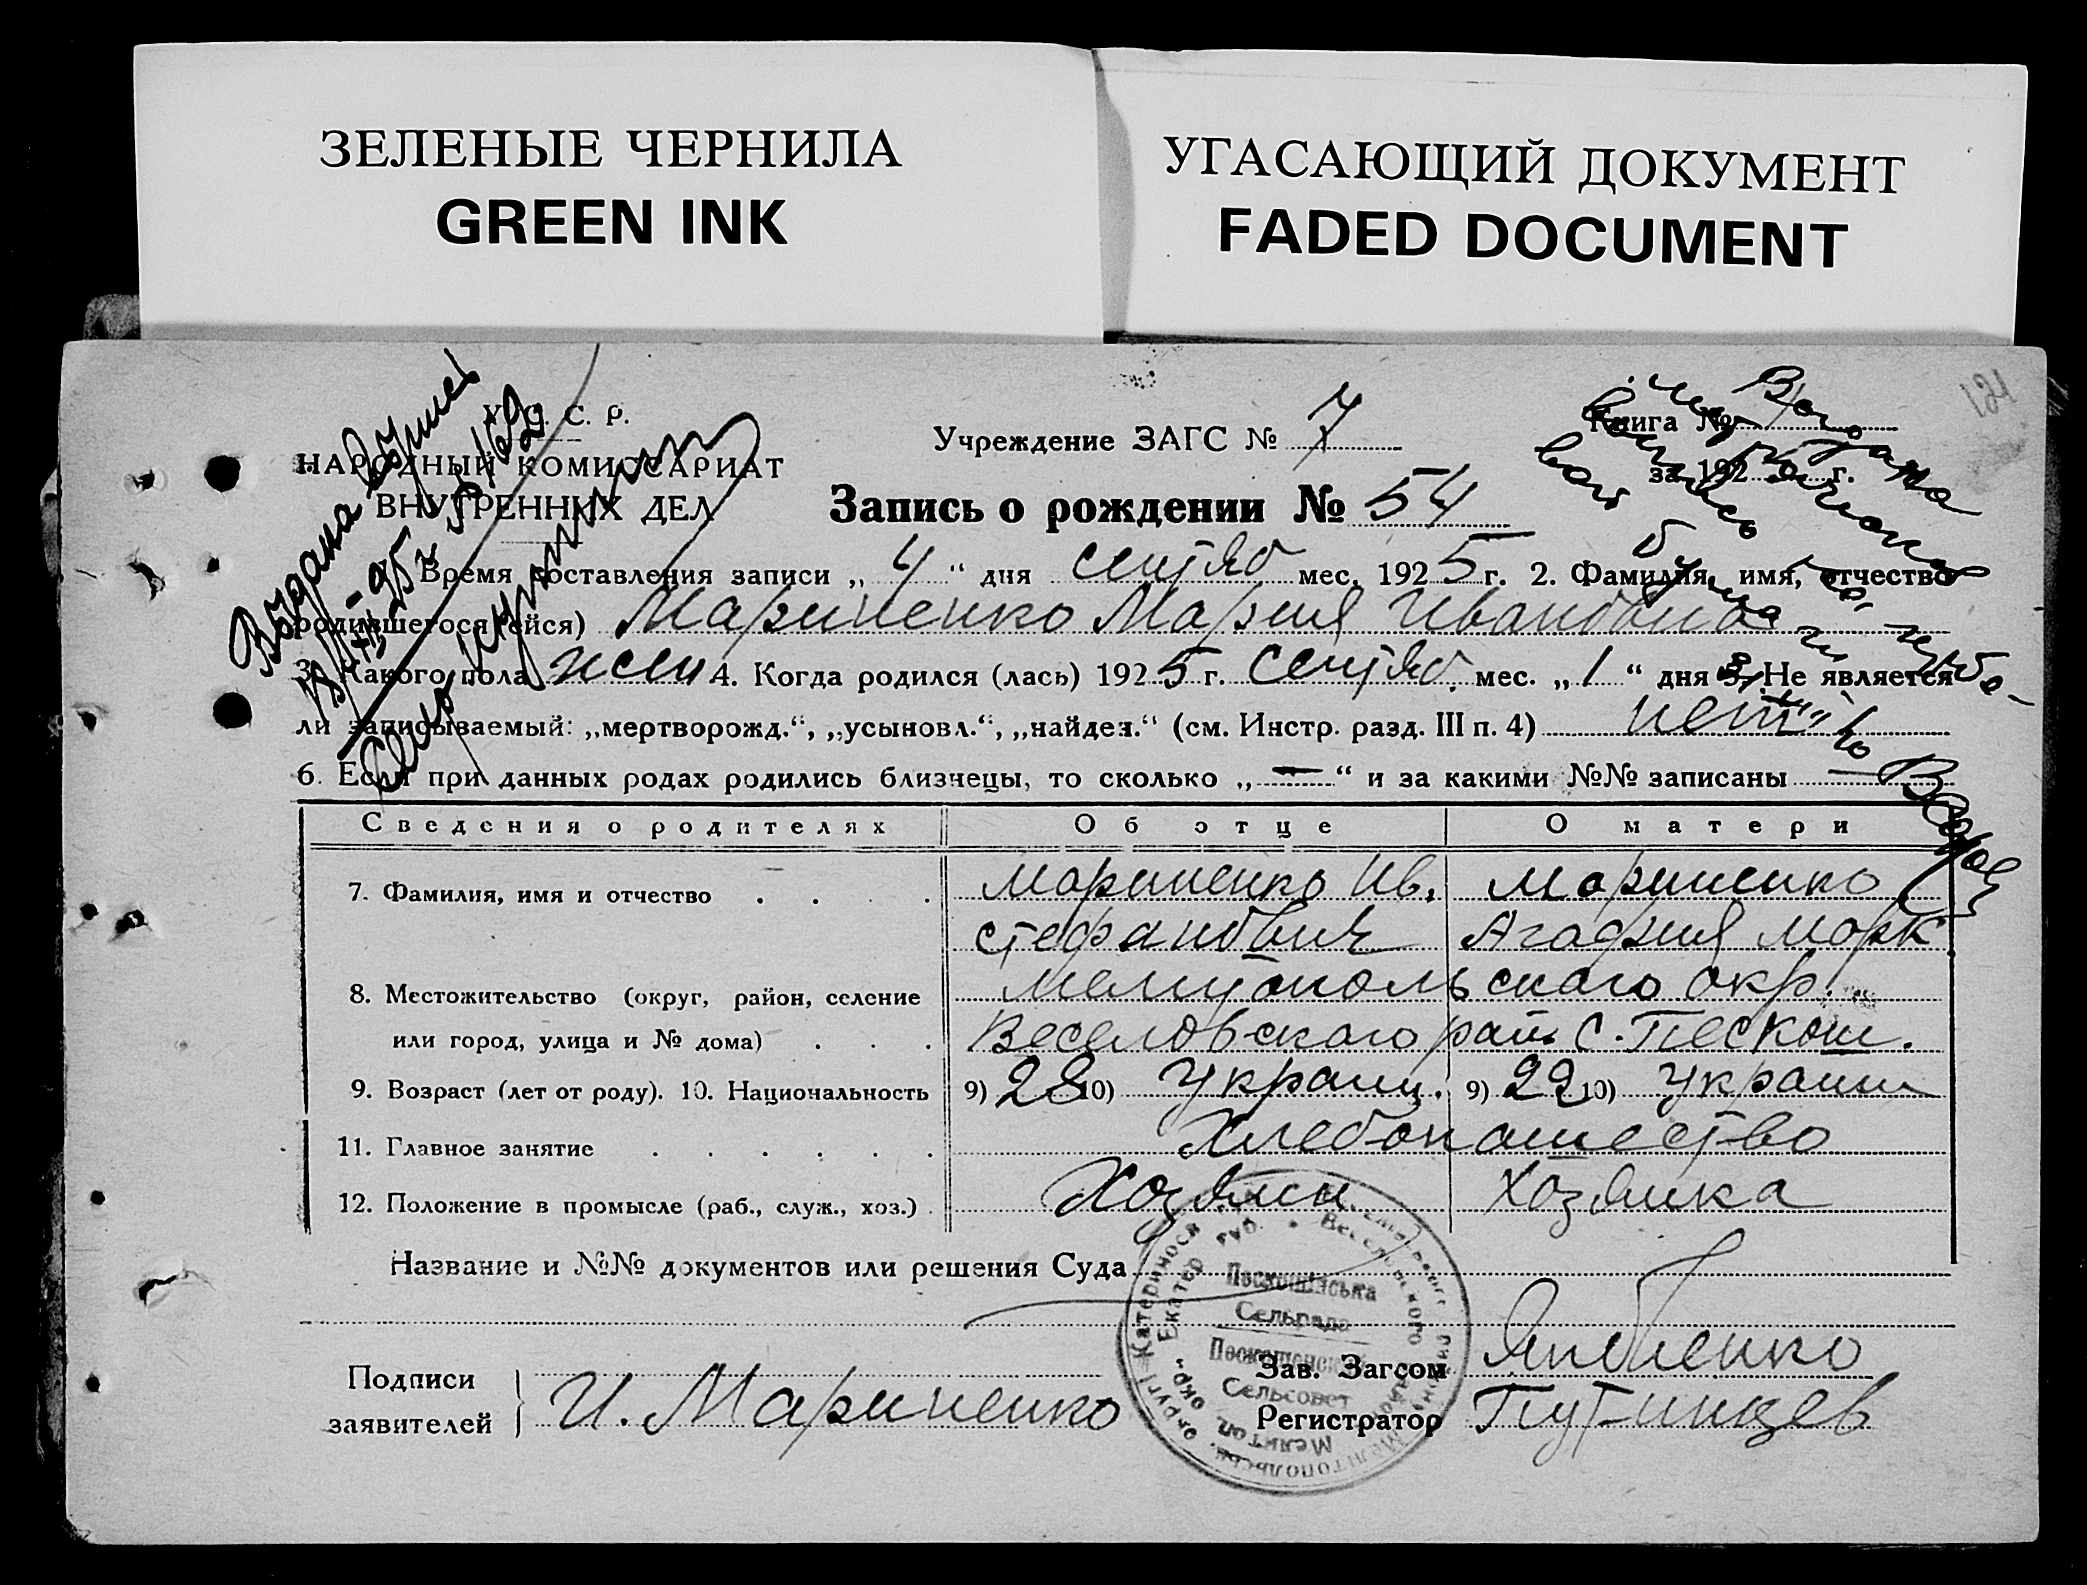 ЗЕЛЕНЫЕ ЧЕРНИЛА
GREEN INK
УГАСАЮЩИЙ ДОКУМЕНТ
FADED DOCUMENT
121
У. С. С. Р.
НАРОДНЫЙ КОМИССАРИАТ
ВНУТРЕННИХ ДЕЛ
Учреждение ЗАГС № 7
Книга №
за 192 г.
Запись о рождении № 54
Время составления записи „ 4 “ дня сентяб мес. 1925 г. 2. Фамилия, имя, отчество
родившегося (ейся) Мариненко Мария Ивановна
3. Какого пола жен 4. Когда родился (лась) 1925 г. сентяб. мес. „ 1 “ дня 5. Не является
ли записываемый: „мертворожд.“, „усыновл.“, „найден.“ (см. Инстр. разд. III п. 4) нет
6. Если при данных родах родились близнецы, то сколько „ — “ и за какими №№ записаны —
Выдана
Сведения о родителях Об отце О матери
7. Фамилия, имя и отчество . . . . Мариненко Ив. Мариненко
Стефанович Агафия Марк
8. Местожительство (округ, район, селение Мелитопольского окр.
или город, улица и № дома) . . . Веселовского рай. с. Пескош.
9. Возраст (лет от роду). 10. Национальность 9) 28 10) Украин. 9) 22 10) Украин
11. Главное занятие . . . . . . Хлебопашество
12. Положение в промысле (раб., служ., хоз.) . Хозяин Хозяйка
Название и №№ документов или решения Суда
Сельрада
Сельсовет
Подписи
заявителей И. Мариненко
Зав. Загсом Яковенко
Регистратор Путинцев